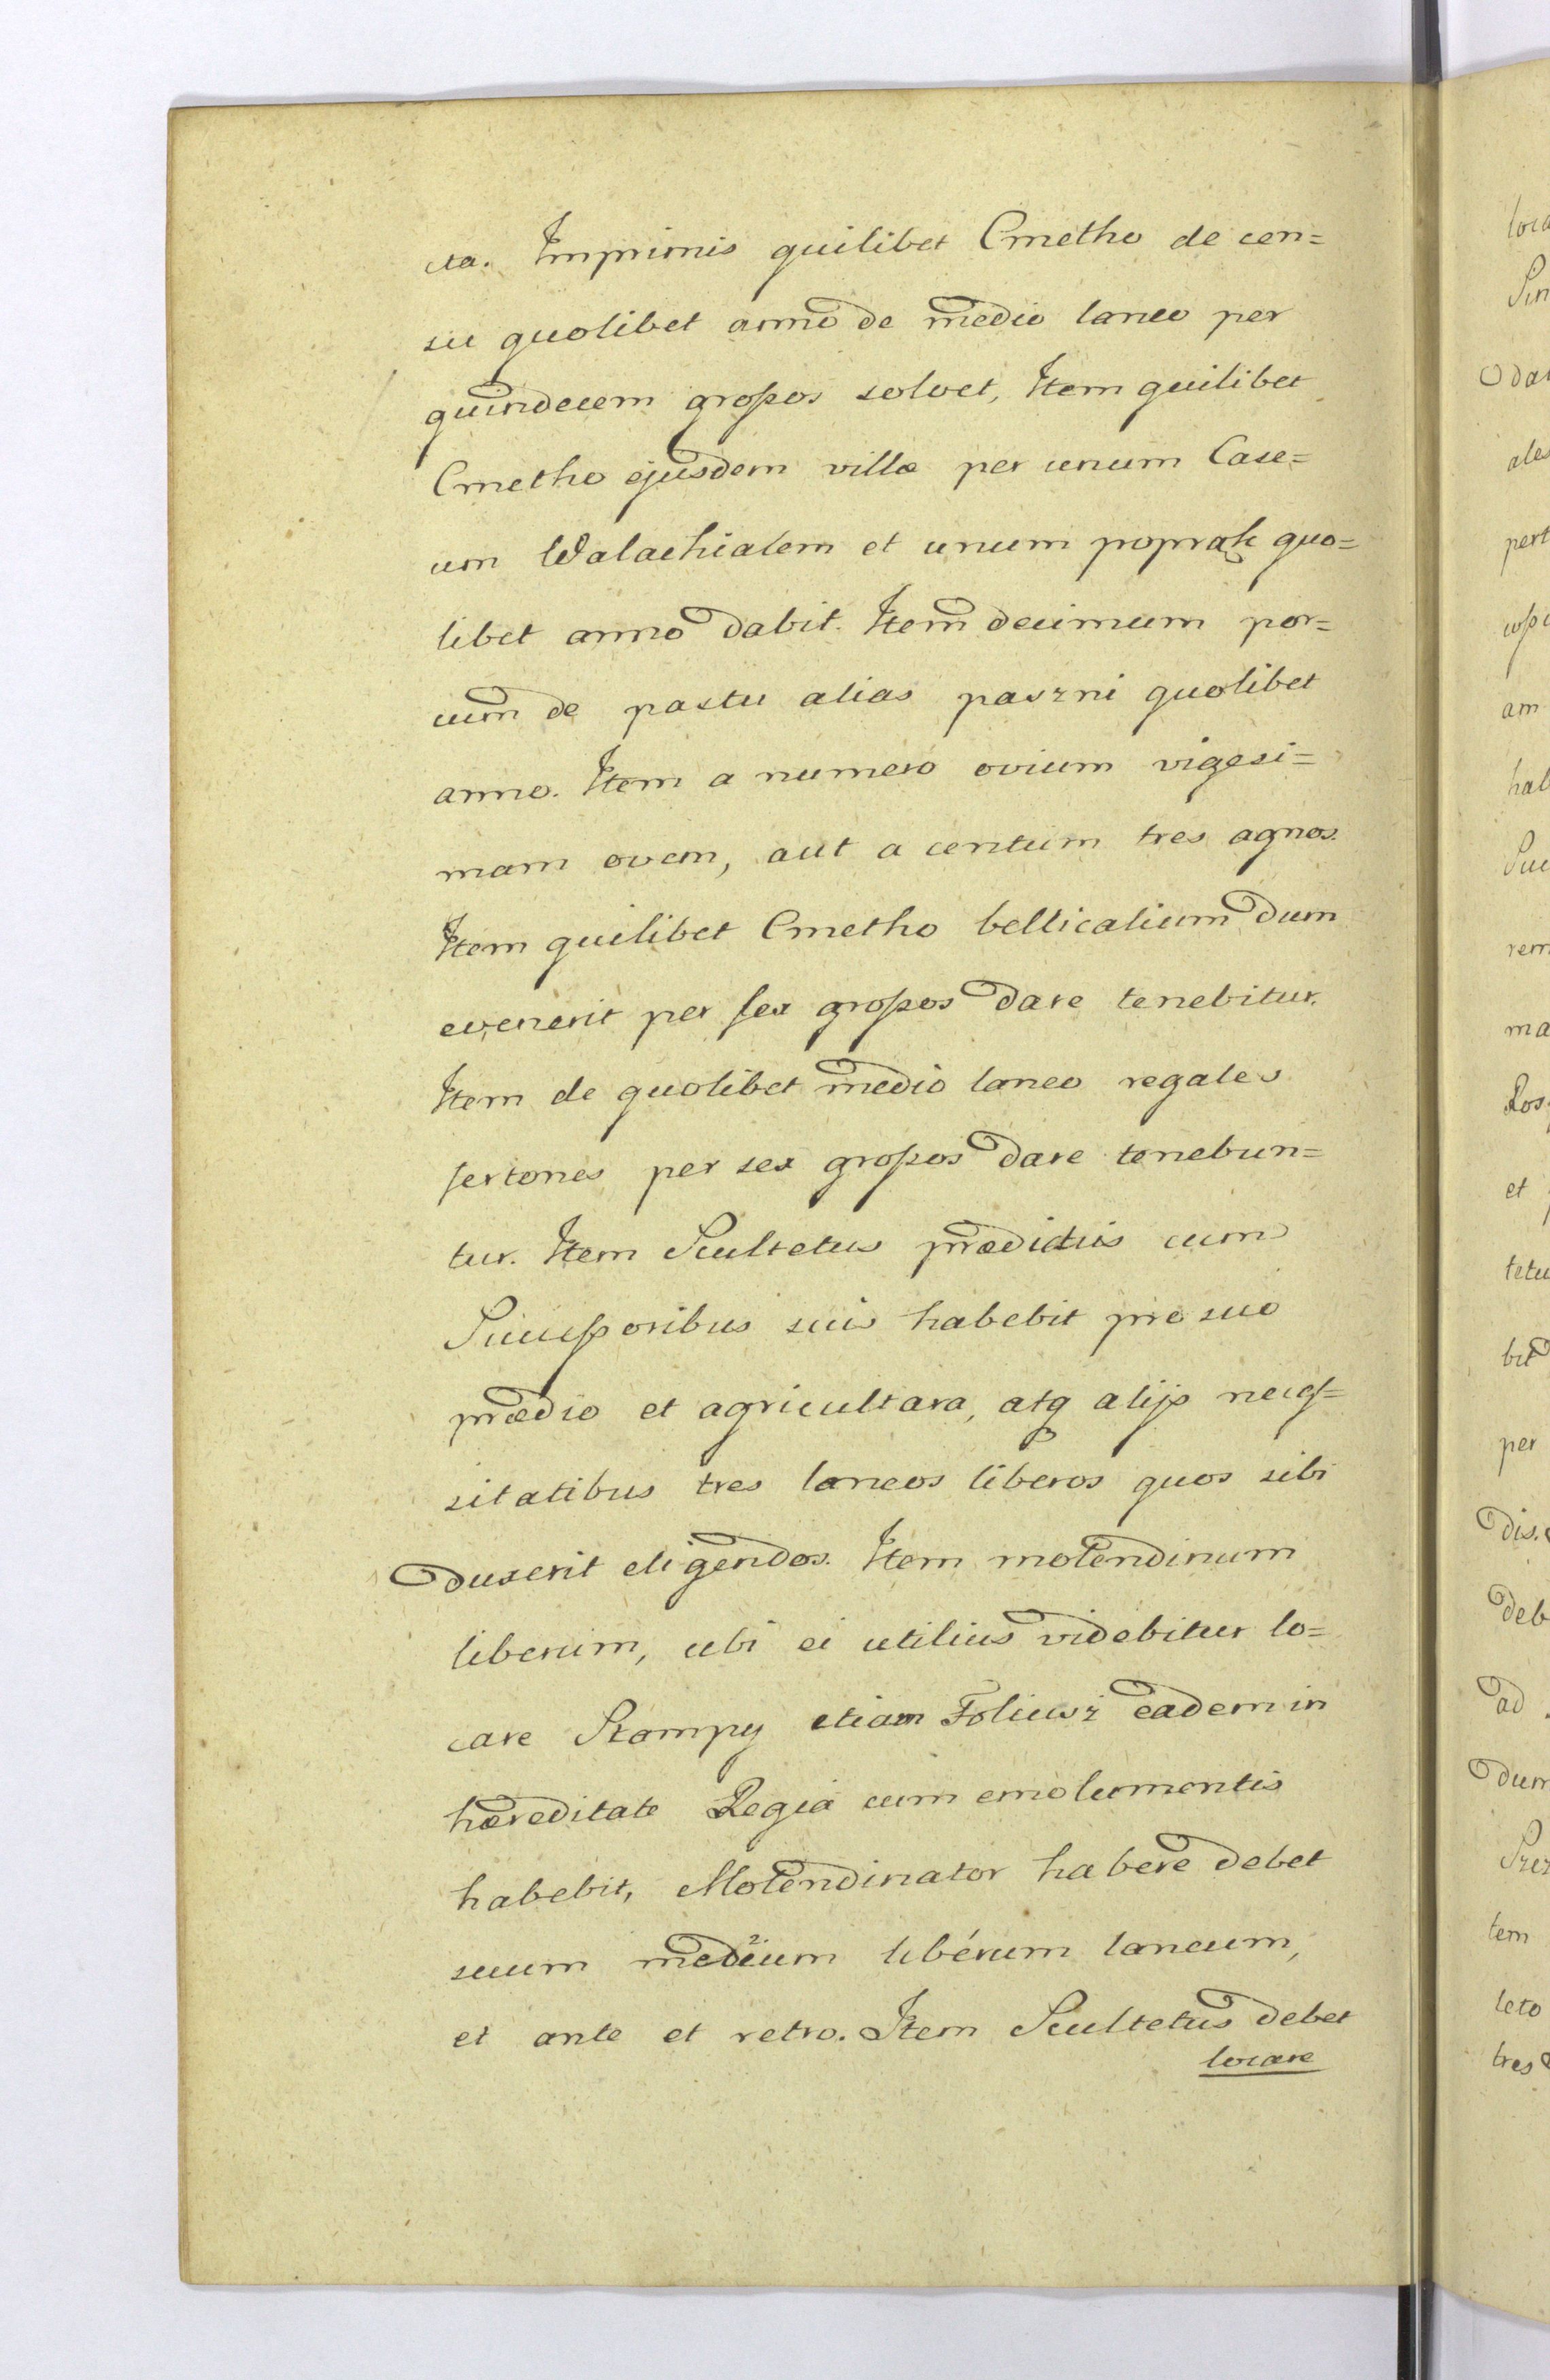 cta. Imprimis quilibet Cmetho de cen=
su quolibet anno de medio laneo per
quindecem grossos solvet, Item quilibet
Cmetho ejusdem villæ per unum Case=
um Walachialem et unum poprąk quo=
libet anno dabit. Item decimum por=
cum de pastu alias paszni quolibet
anno. Item a numero ovium vigesi=
mam ovem, aut a centum tres agnos.
Item quilibet Cmetho bellicalium dum
evenerit per sex grossos dare tenebitur.
Item de quolibet medio laneo regales
fertones per sex grossos dare tenebun=
tur. Item Scultetus prædictus cum
Successoribus suis habebit pro suo
prædio et agricultara, atq alijs neces=
sitatibus tres laneos liberos quos sibi
duxerit eligendos. Item molendinum
liberum, ubi ei utilius videbitur lo=
care Stampy etiam Folusz eadem in
hæreditate Regia cum emolumentis
habebit, Molendinator habere debet
suum medium liberum laneum,
et ante et retro. Item Scultetus debet
locare
loca
Sin
da
ales
pert
am
hab
Suc
rem
ma
Ros
et
tetu
bit
per
dis.
deb
ad
dum
tem
leto
tres